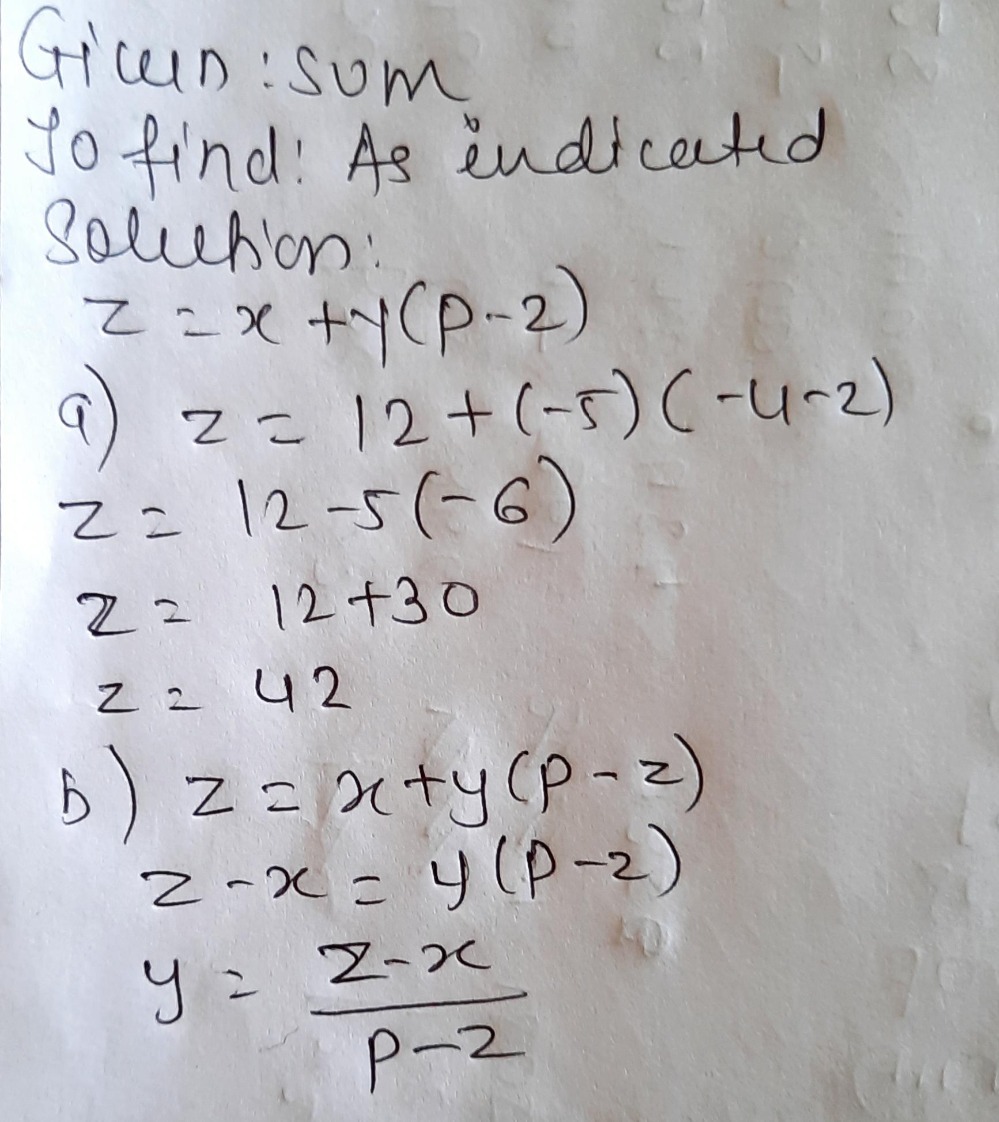 Given : sum
To find: As indicated
Solution:
z = x + y(p-2)
a) z = 12 + (-5) (-4-2)
z = 12 -5(-6)
z = 12+30
z = 42
b) z = x+y(p-2)
z -x = y(p-2)
y = \frac{z-x}{p-2}